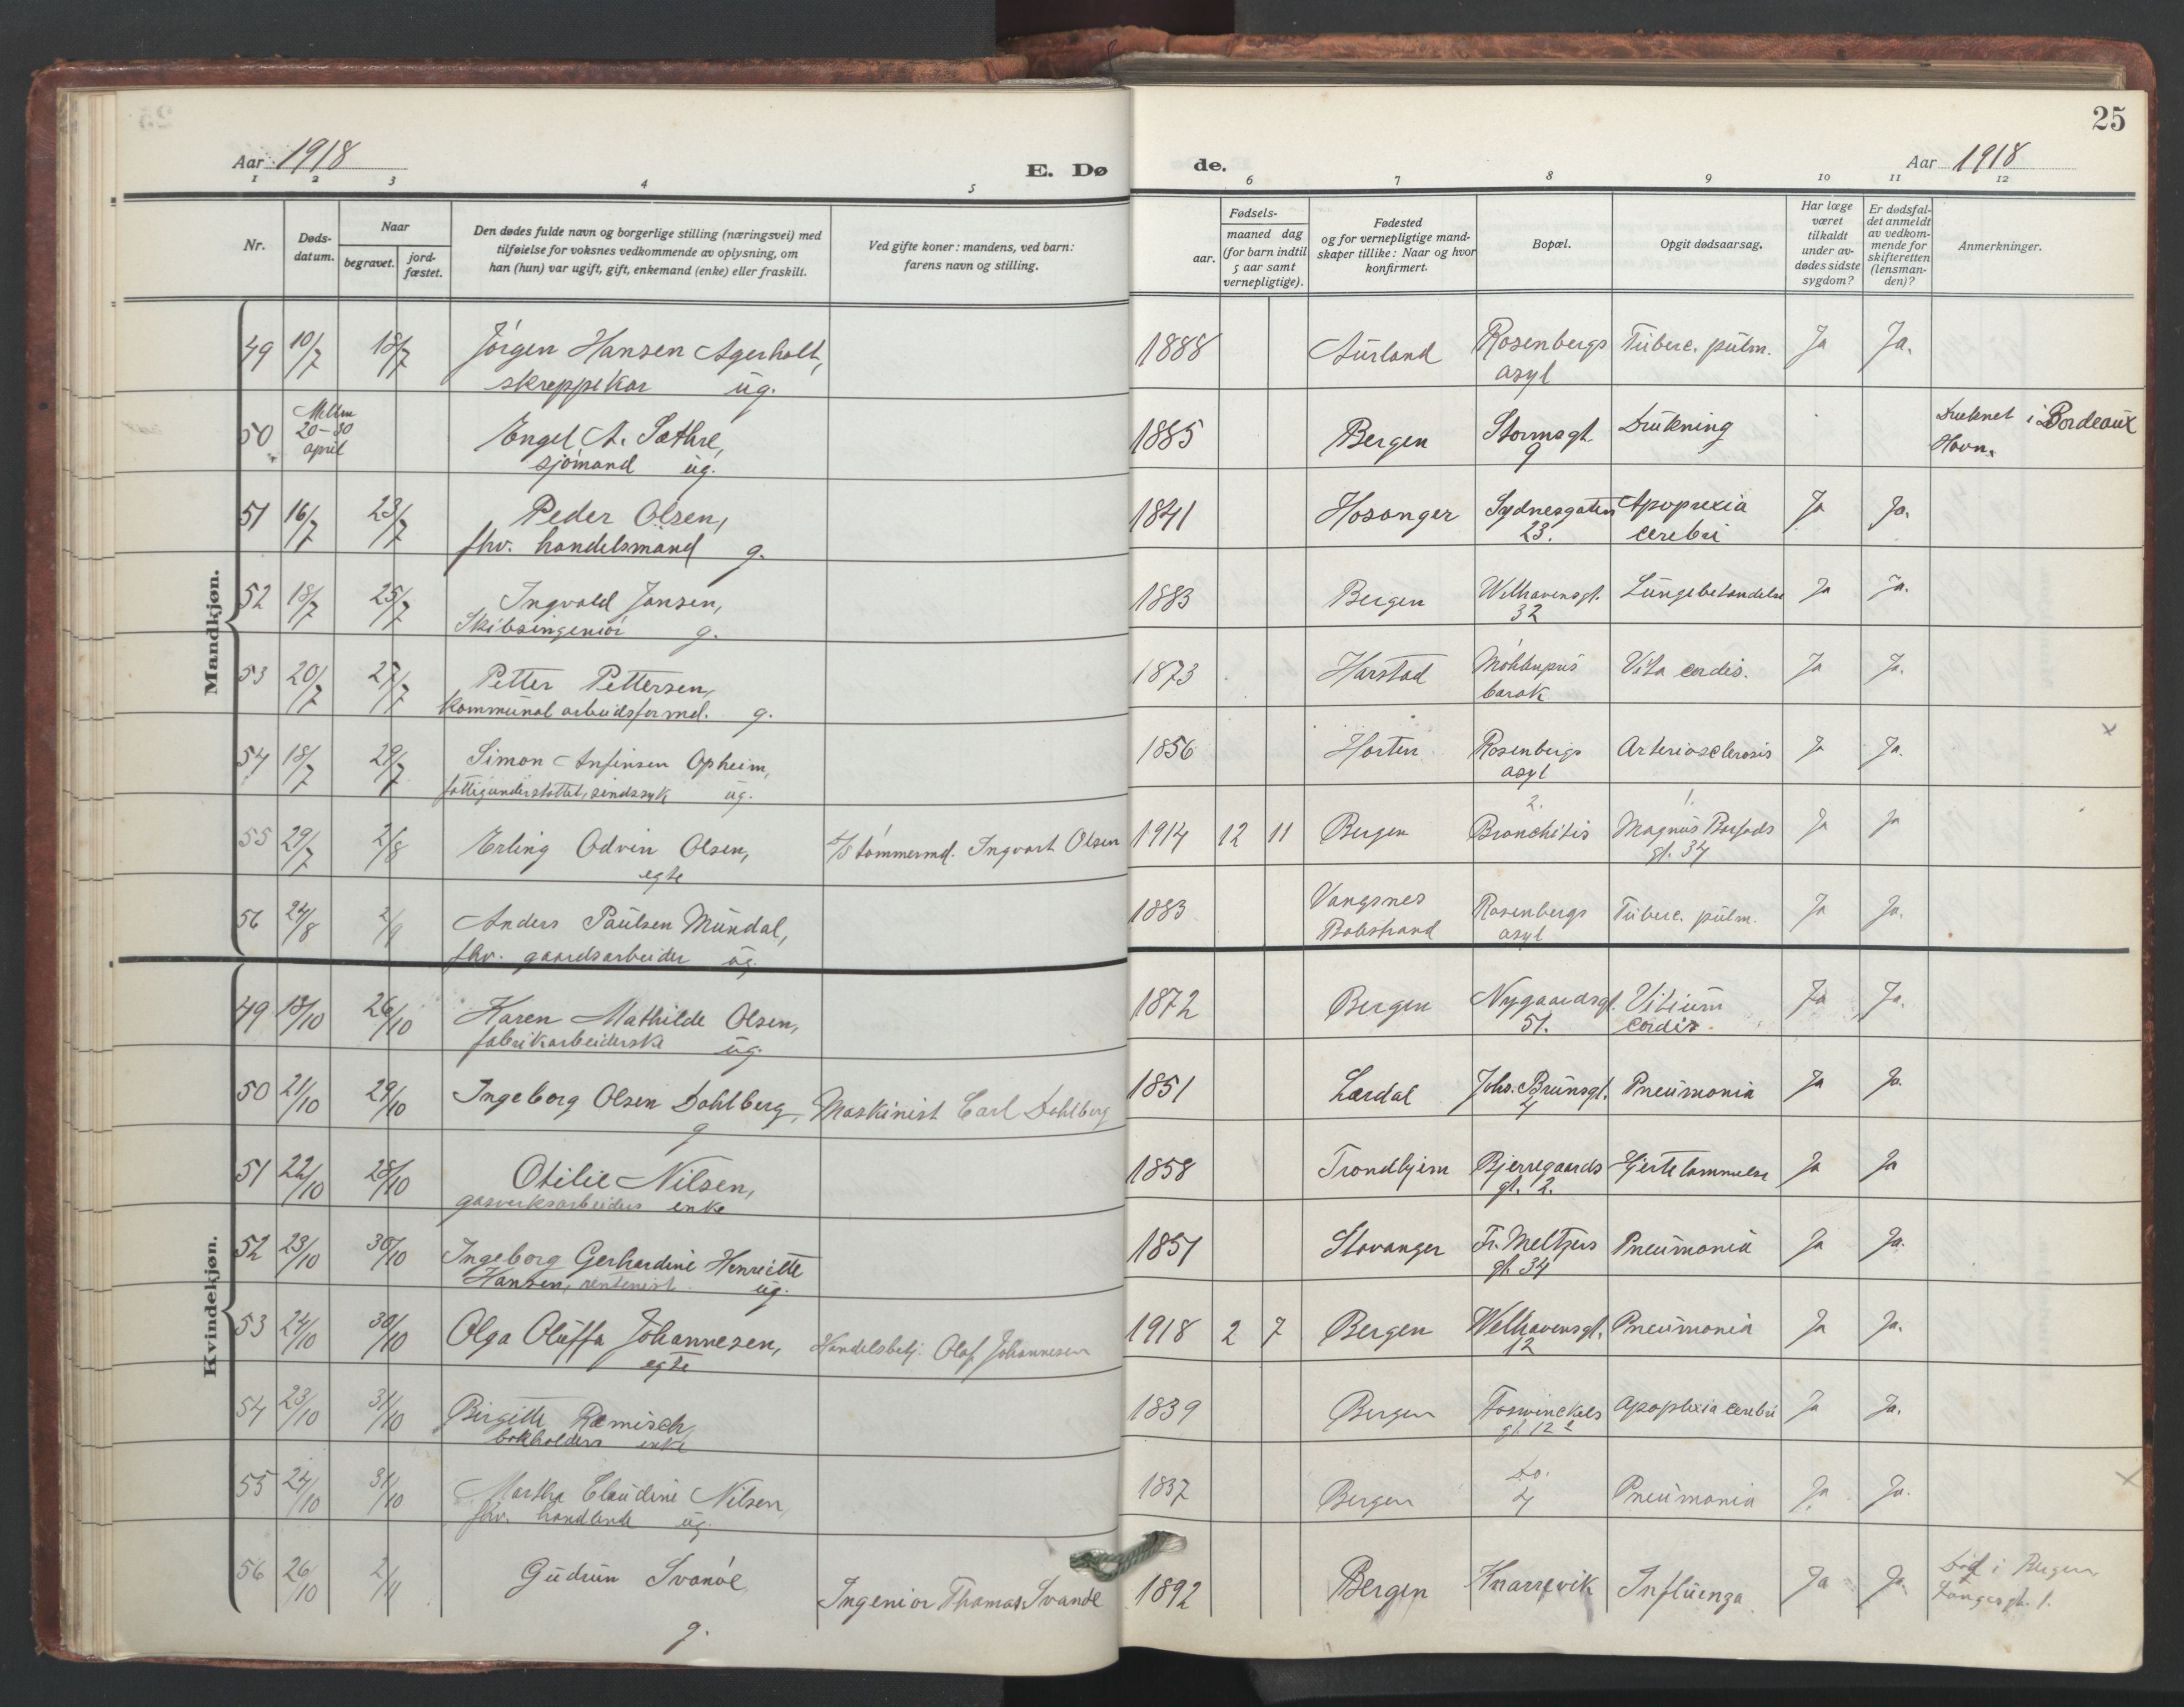 25
Aar 1918
E. Dø de.
Aar 1918
1 2 3 4 5 6 7 8 9 10 11 12
Nr.
Døds-
datum.
Naar
begravet.
jord-
fæstet.
Den dødes fulde navn og borgerlige stilling (næringsvei) med
tilføielse for voksnes vedkommende av oplysning, om
han (hun) var ugift, gift, enkemand (enke) eller fraskilt.
Ved gifte koner: mandens, ved barn:
farens navn og stilling.
Fødsels-
aar.
maaned dag
(for barn indtil
5 aar samt
vernepligtige).
Fødested
og for vernepligtige mand-
skaper tillike: Naar og hvor
konfirmert.
Bopæl.
Opgit dødsaarsag.
Har læge
været
tilkaldt
under av-
dødes sidste
sygdom?
Er dødsfal-
det anmeldt
av vedkom-
mende for
skifteretten
(lensman-
den)?
Anmerkninger.
Mandkjøn.
49 10/7 18/7 Jörgen Hansen Agerholt, 1888 Aurland Rosenbergs Tuberc. pulm. Ja Ja.
skreppekar ug. asyl
50 Mellm 20-30 april Engel A. Sæthre, 1885 Bergen Stormsgt. Drukning Druknet i Bordeaux
sjömand ug. 9 Havn.
51 16/7 23/7 Peder Olsen, 1841 Hosanger Sydnesgaten Apoplexia Ja Ja.
fhv. handelsmand g. 23. cerebri
52 18/7 25/7 Ingvald Jansen, 1883 Bergen Welhavensgt. Lungebetændelse Ja Ja.
Skibsingeniör g. 32
53 20/7 27/7 Petter Pettersen, 1873 Harstad Möhlenpris Vita cordis. Ja Ja.
kommunal arbeidsformd. g. barak
54 18/7 29/7 Simon Anfinsen Opheim, 1856 Horten Rosenbergs Arteriosclerosis Ja Ja. x
fattigunderstöttet, sindssyk ug. asyl
2. 1.
55 29/7 2/8 Erling Odvin Olsen, tömmermd. Ingvart Olsen 1914 12 11 Bergen Bronchitis Magnus Barfods Ja Ja
egte gt. 34
56 24/8 2/9 Anders Paulsen Mundal, 1883 Vangsnes Rosenbergs Tuberc. pulm. Ja Ja.
fhv. gaardsarbeider ug. Balestrand asyl
Kvindekjøn.
49 18/10 26/10 Karen Mathilde Olsen, 1872 Bergen Nygaardsgt. Vitium Ja Ja.
fabrikarbeiderske ug. 51. cordis
50 21/10 29/10 Ingeborg Olsen Dahlberg, Maskinist Carl Dahlberg 1851 Lærdal Johs. Brunsgt. Pneumonia Ja Ja.
g 4
51 22/10 28/10 Otilie Nilsen, 1858 Trondhjem Bjerregaards Hjertelammelse Ja Ja
gasverksarbeiders enke gt. 2.
52 23/10 30/10 Ingeborg Gerhardine Henriette 1851 Stavanger Fr. Meltzers Pneumonia Ja Ja.
Hansen, rentenist. ug. gt. 34
53 24/10 30/10 Olga Oluffa Johannesen, Handelsbetj. Olaf Johannesen 1918 2 7 Bergen Welhavensgt. Pneumonia Ja Ja.
egte 12
54 23/10 31/10 Birgitte Ræmisch, 1839 Bergen Foswinckels Apoplexia cerebri Ja Ja.
bokholders enke gt. 12
55 24/10 31/10 Martha Claudine Nilsen, 1837 Bergen Do. 4 Pneumonia Ja Ja. x
fhv. handlende ug.
56 26/10 2/11 Gudrun Svanöe, Ingeniör Thomas Svanöe 1892 Bergen Knarrevik Influenza Ja Ja. Död i Bergen
g. 1.